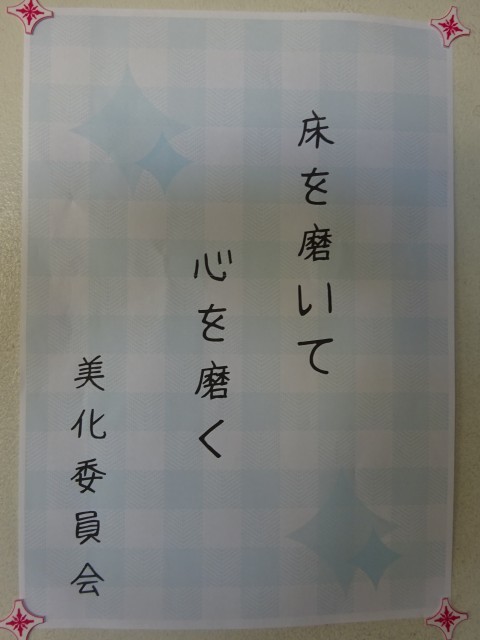 床を磨いて
心を磨く
美化委員会